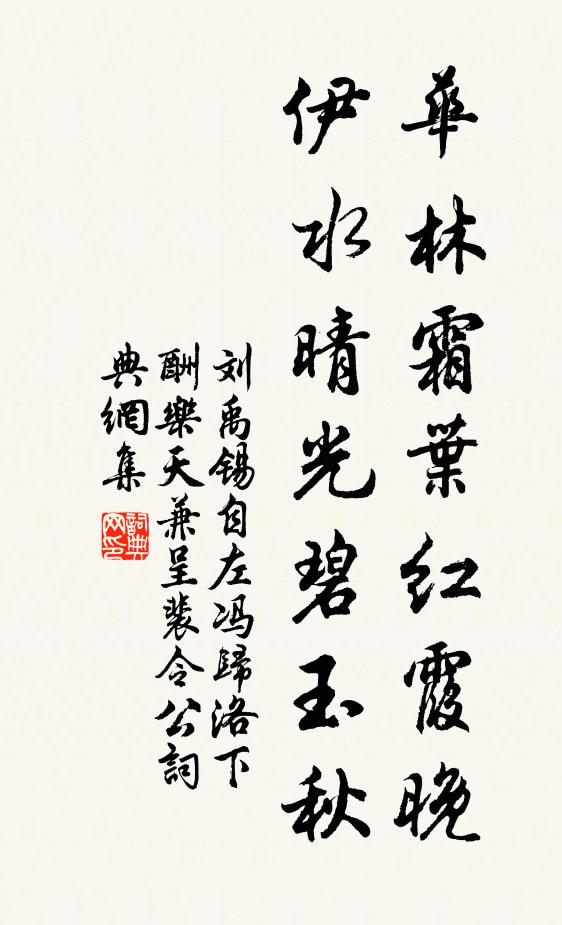 華林霜葉红霞晚
伊水晴光碧玉秋
刘禹锡自左冯歸洛下
酬樂天兼呈裴令公詞
典網集
詞典
网印